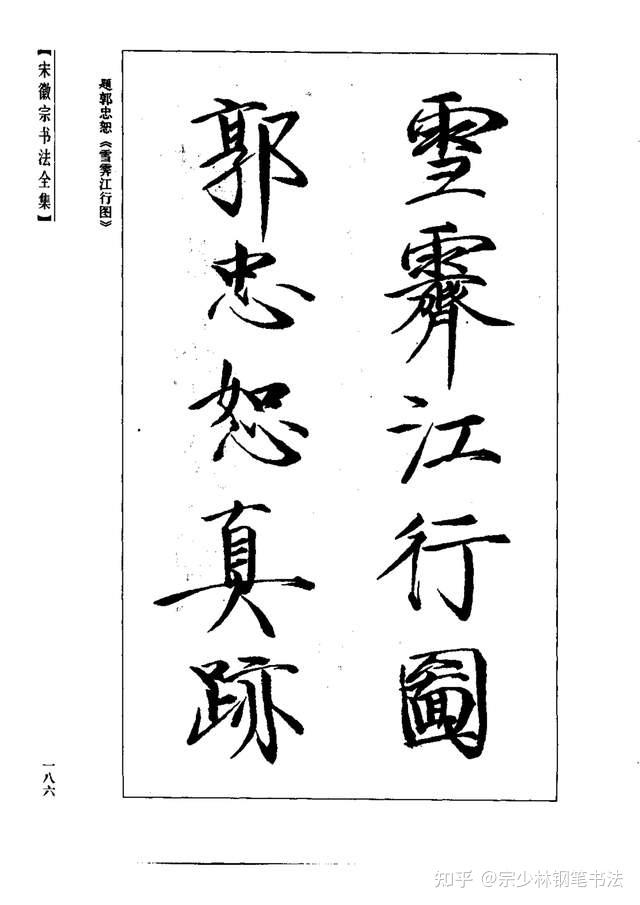 雪霽江行圖
郭忠恕真跡
題郭忠恕《雪霽江行图》
【宋徽宗书法全集】
一八六
知乎 @宗少林钢笔书法